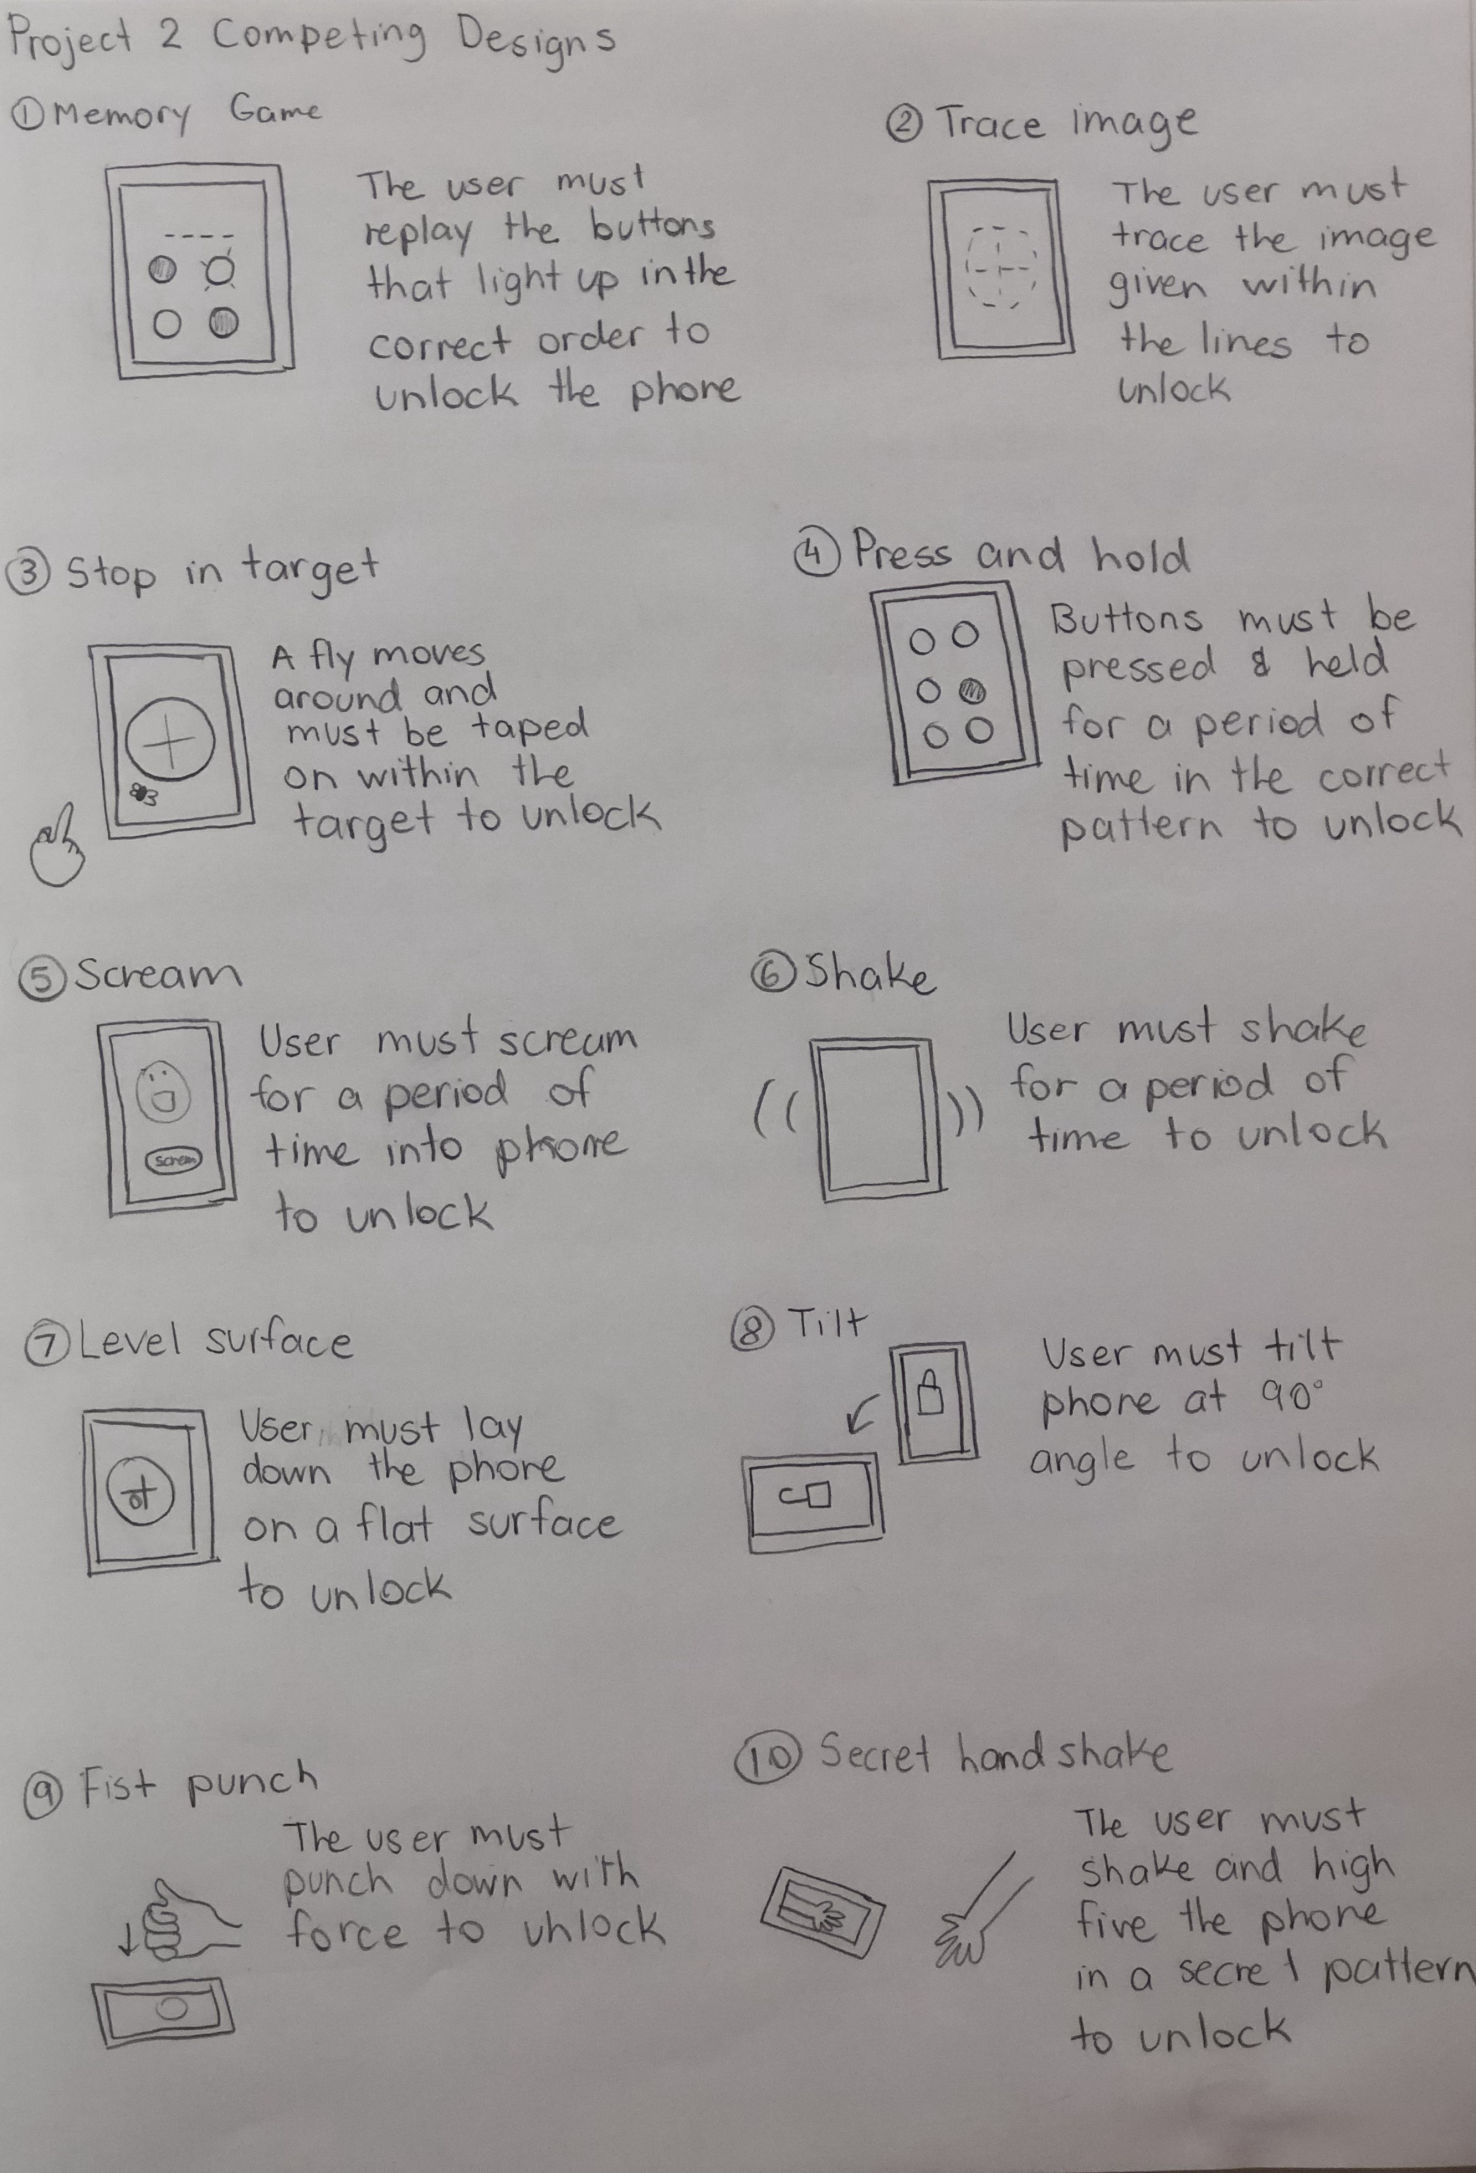 Project 2 Competing Designs
① Memory Game
The user must
replay the buttons
that light up in the
correct order to
unlock the phone
② Trace image
The user must
trace the image
given within
the lines to
unlock
③ Stop in target
A fly moves
around and
must be taped
on within the
target to unlock
④ Press and hold
Buttons must be
pressed & held
for a period of
time in the correct
pattern to unlock
⑤ Scream
Scream
User must scream
for a period of
time into phone
to unlock
⑥ Shake
User must shake
for a period of
time to unlock
⑦ Level surface
User must lay
down the phone
on a flat surface
to unlock
⑧ Tilt
User must tilt
phone at 90°
angle to unlock
⑨ Fist punch
The user must
punch down with
force to unlock
⑩ Secret handshake
The user must
shake and high
five the phone
in a secret pattern
to unlock